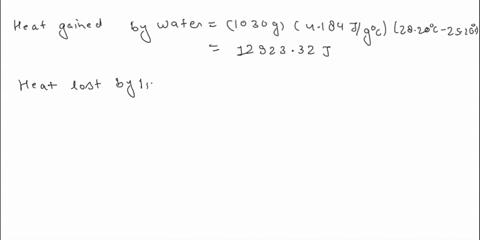 Heat gained by water = (1030g) (4.184 J/g°c) (28.20°c-25.20°)
= 12923.32 J
Heat lost by